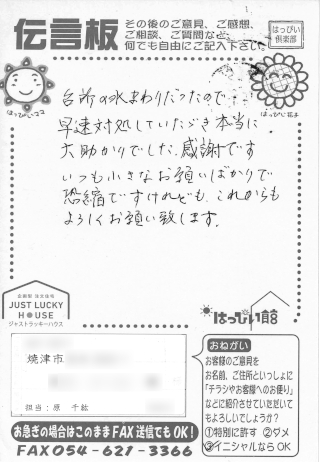 伝言板
その後のご意見、ご感想、
ご相談、ご質問など、
何でも自由にご記入下さい
はっぴい
倶楽部
はっぴいママ
はっぴい花子
台所の水まわりだったので
早速対処していただき本当に
大助かりでした。感謝です
いつも小さなお願いばかりで
恐縮ですけれども、これからも
よろしくお願い致します。
企画型 注文住宅
JUST LUCKY
HOUSE
ジャストラッキーハウス
はっぴい館
焼津市
担当:原 千紘
おねがい
お客様のご意見を
お名前、ご住所といっしょに
「チラシやお客様へのお便り」
などに紹介させていただいて
もよろしいでしょうか?
①特別に許す ②ダメ
③イニシャルなら OK
お急ぎの場合はこのまま FAX 送信でも OK!
FAX 054-621-3366